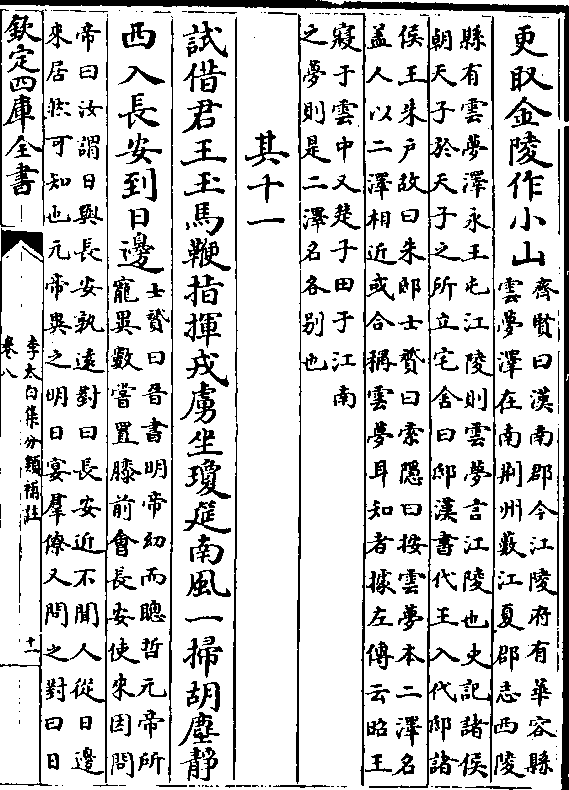 更取金陵作小山
齊賢曰漢南郡今江陵府有華容縣
雲夢澤在南荆州藪江夏郡志西陵
縣有雲夢澤永王屯江陵則雲夢言江陵也史記諸侯
朝天子於天子之所立宅舍曰邸漢書代王入代邸諸
侯王朱户故曰朱邸士贇曰索隠曰按雲夢本二澤名
盖人以二澤相近或合稱雲夢耳知者據左傳云昭王
寢于雲中又楚子田于江南
之夢則是二澤名各别也
其十一
試借君王玉馬鞭指揮戎虜坐瓊筵南風一掃胡塵靜
西入長安到日邊
士贇曰晉書明帝幼而聰哲元帝所
寵異數嘗置膝前會長安使來因問
帝曰汝謂日與長安孰遠對曰長安近不聞人從日邊
來居然可知也元帝異之明日宴羣僚又問之對曰日
欽定四庫全書
李太白集分類補註
卷八
十一